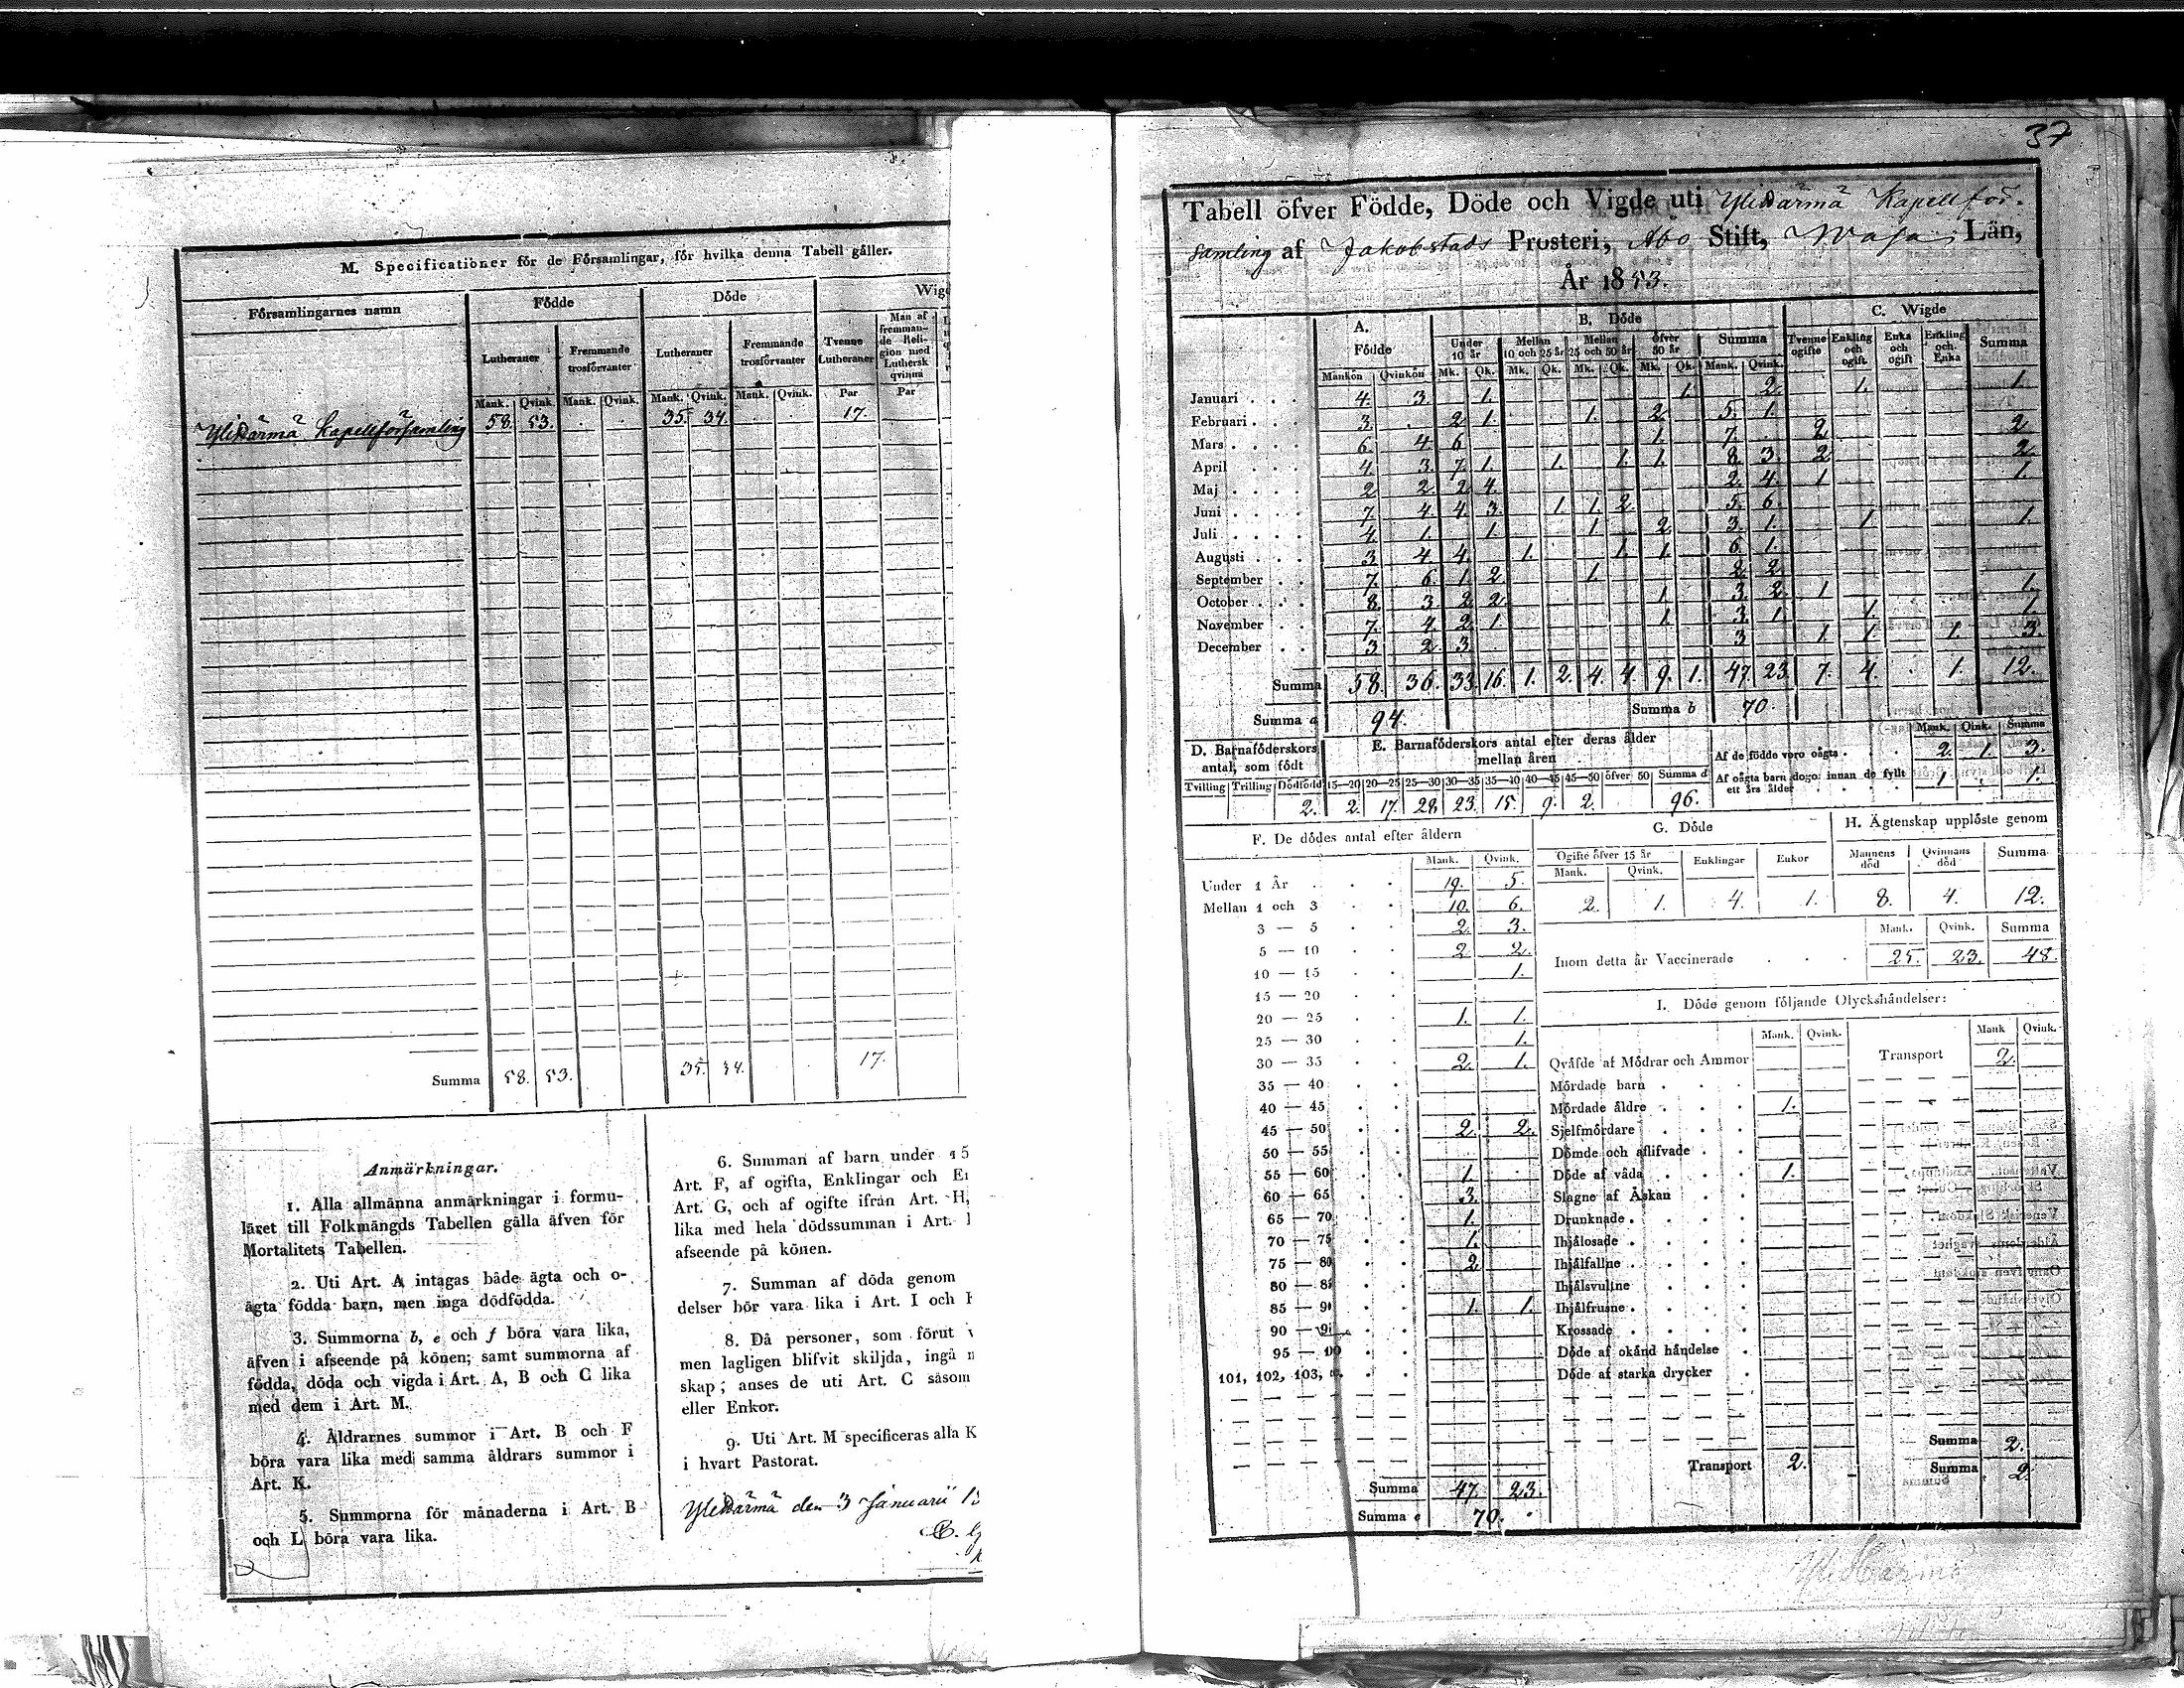 M. Specificationer för de Församlingar, för hvilka denna Tabell gäller.
Församlingarnes namn Födde Döde
Lutheraner Fremmande trosförvanter Lutheraner Fremmande trosförvanter Tvenne Lutheraner Man af fremmande Religion med Luthersk qvinna
Mank. Qvink. Mank. Qvink. Mank. Qvink. Mank. Qvink. Par Par
YliHärmä Kapellförsamling 58. 53. 35. 34. 17.
Summa 58. 53. 35. 34. 17.
Anmärkningar.
1. Alla allmänna anmärkningar i formu-
läret till Folkmängds Tabellen gälla äfven för
Mortalitets Tabellen.
2. Uti Art. A intagas både ägta och o-
ägta födda barn, men inga dödfödda.
3. Summorna b, e och f böra vara lika,
äfven i afseende på könen; samt summorna af
födda, döda och vigda i Art. A, B och C lika
med dem i Art. M.
4. Åldrarnes summor i Art. B och F
böra vara lika med samma åldrars summor i
Art. K.
5. Summorna för månaderna i Art. B
och L böra vara lika.
6. Summan af barn under 15
Art. F, af ogifta, Enklingar och
Art. G, och af ogifte ifrån Art. H,
lika med hela dödssumman i Art.
afseende på könen.
7. Summan af döda genom
delser bör vara lika i Art. I och
8. Då personer, som förut
men lagligen blifvit skiljda, ingå
skap; anses de uti Art. C såsom
eller Enkor.
9. Uti Art. M specificeras alla K
i hvart Pastorat.
YliHärmä den 3 Januarii
37
Tabell öfver Födde, Döde och Vigde uti YliHärmä Kapellför-
samling af Jakobstads Prosteri, Åbo Stift, Wasa Län,
År 1853.
A. Födde B. Döde C. Wigde
Under 10 år Mellan 10 och 25 år Mellan 25 och 50 år öfver 50 år Summa Tvenne ogifte Enkling och ogift Enka och ogift Enkling och Enka Summa
Mankön Qvinkön Mk. Qk. Mk. Qk. Mk. Qk. Mk. Qk. Mank. Qvink.
Januari 4. 3. 1. 1. 2. 1. 1.
Februari 3. . 2. 1. 1. 2. 5. 1.
Mars 6. 4. 6. 1. 7. . 2. 2.
April 4. 3. 7. 1. 1. 1. 1. 8. 3. 2. 2.
Maj 2. 2. 2. 4. 2. 4. 1. 1.
Juni 7. 4. 4. 3. 1. 1. 2. 5. 6.
Juli 4. 1. 1. 1. 2. 3. 1. 1. 1.
Augusti 3. 4. 4. 1. 1. 1. 6. 1.
September 7. 6. 1. 2. 1. 2. 2.
October 8. 3. 2. 2. 1. 3. 2. 1. 1.
November 7. 4. 2. 1. 1. 3. 1. 1. 1.
December 3. 2. 3. 3. 1. 1. 1. 3.
Summa 58. 36. 33. 16. 1. 2. 4. 4. 9. 1. 47. 23. 7. 4. . 1. 12.
Summa a 94. Summa b 70.
D. Barnaföderskors antal, som födt
Tvilling Trilling Dödfödd
2.
E. Barnaföderskors antal efter deras ålder mellan åren
15—20 20—25 25—30 30—35 35—40 40—45 45—50 öfver 50 Summa d
2. 17. 28. 23. 15. 9. 2. 96.
Mank. Qink. Summa
Af de födde voro oägta 2. 1. 3.
Af oägta barn dogo innan de fyllt ett års ålder 1. . 1.
F. De dödes antal efter åldern
Mank. Qvink.
Under 1 År 19. 5.
Mellan 1 och 3 10. 6.
3 — 5 2. 3.
5 — 10 2. 2.
10 — 15 1.
15 — 20
20 — 25 1. 1.
25 — 30 1.
30 — 35 2. 1.
35 — 40
40 — 45
45 — 50 2. 2.
50 — 55
55 — 60 1.
60 — 65 3.
65 — 70 1.
70 — 75 1.
75 — 80 2.
80 — 85
85 — 90 1. 1.
90 — 95
95 — 100
101, 102, 103,
Summa 47. 23.
Summa e 70.
G. Döde
Ogifte öfver 15 år Enklingar Enkor
Mank. Qvink.
2. 1. 4. 1.
H. Ägtenskap upplöste genom
Mannens död Qvinnans död Summa
8. 4. 12.
Mank. Qvink. Summa
Inom detta år Vaccinerade 25. 23. 48.
I. Döde genom följande Olyckshändelser:
Mank. Qvink. Mank Qvink.
Qväfde af Mödrar och Ammor Transport 2.
Mördade barn
Mördade äldre 1.
Sjelfmördare
Dömde och aflifvade
Döde af våda 1.
Slagne af Åskan
Drunknade
Ihjälosade
Ihjälfallne
Ihjälsvultne
Ihjälfrusne
Krossade
Döde af okänd händelse
Döde af starka drycker
Summa 2.
Transport 2. Summa 2.
Yli Härmä